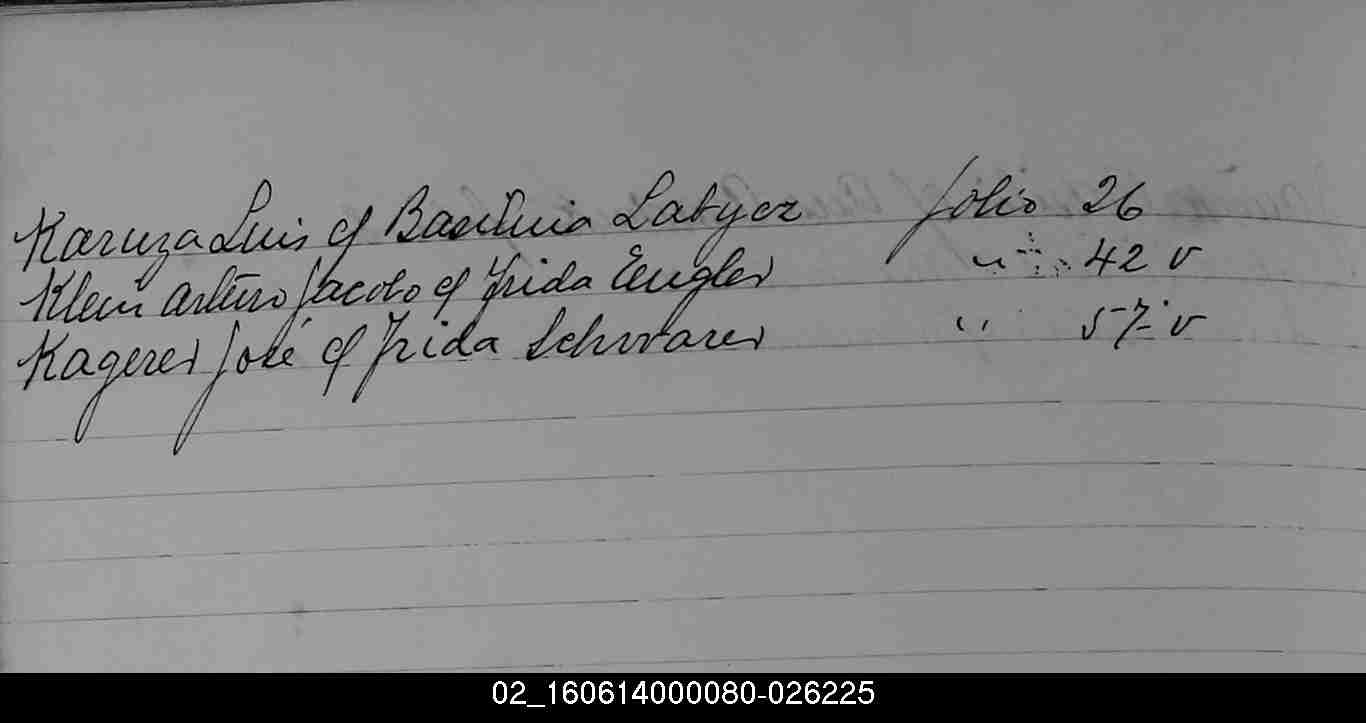 Karuza Luis c/ Basilnia Labycz folio 26
Klein Arturo Jacobo c/ Frida Engler " 42 v
Kagerer José c/ Frida Schwarzer " 57 v
02_160614000080-026225